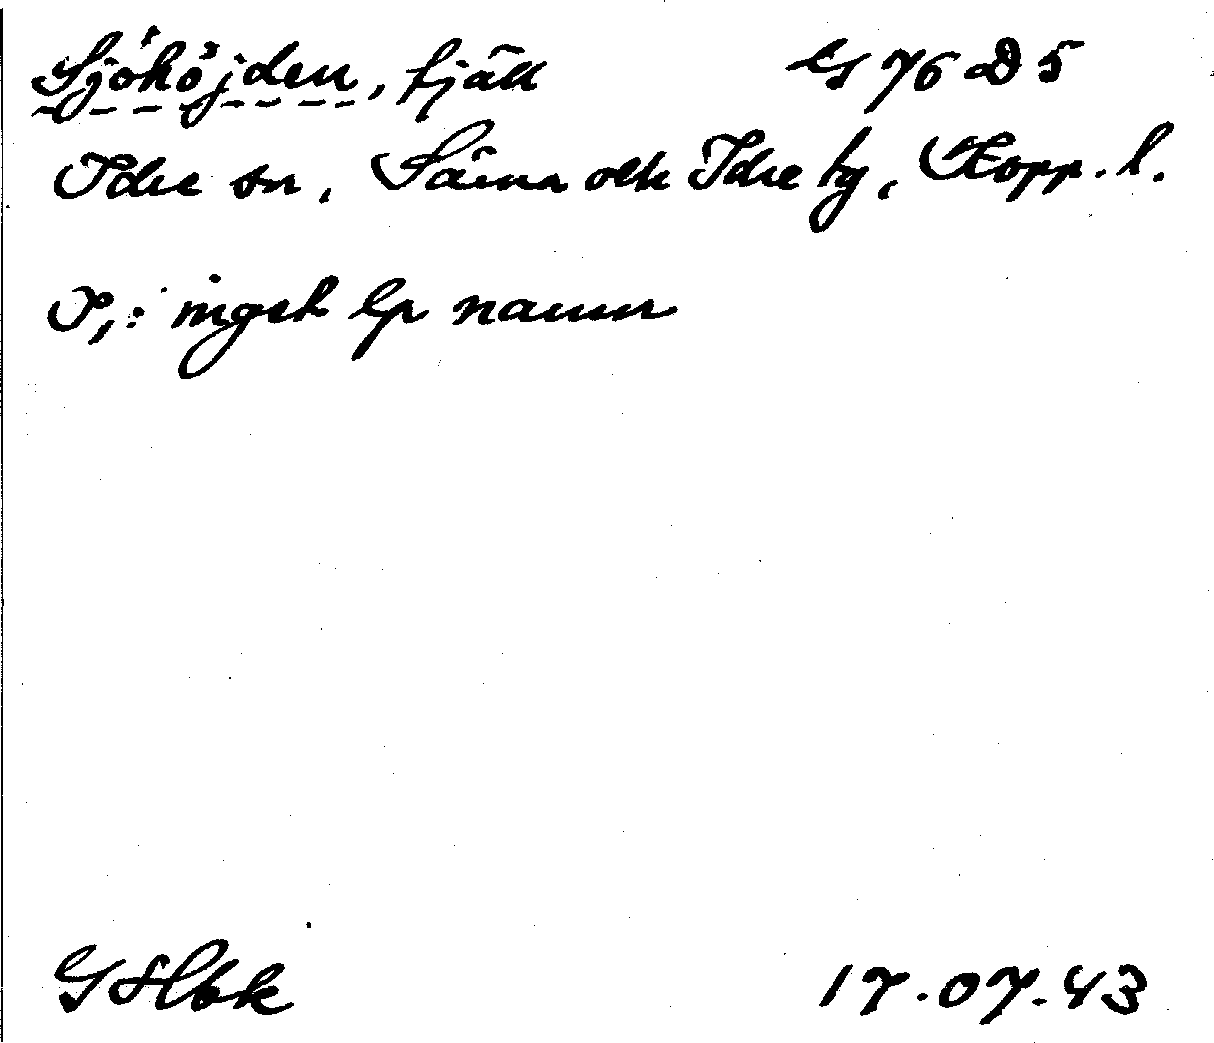 Sjöhöjden, fjäll G 76 D 5
Idre sn, Särna och Idre by, Kopp. l.
I,: inget lp namn
GHbk 17.07.43